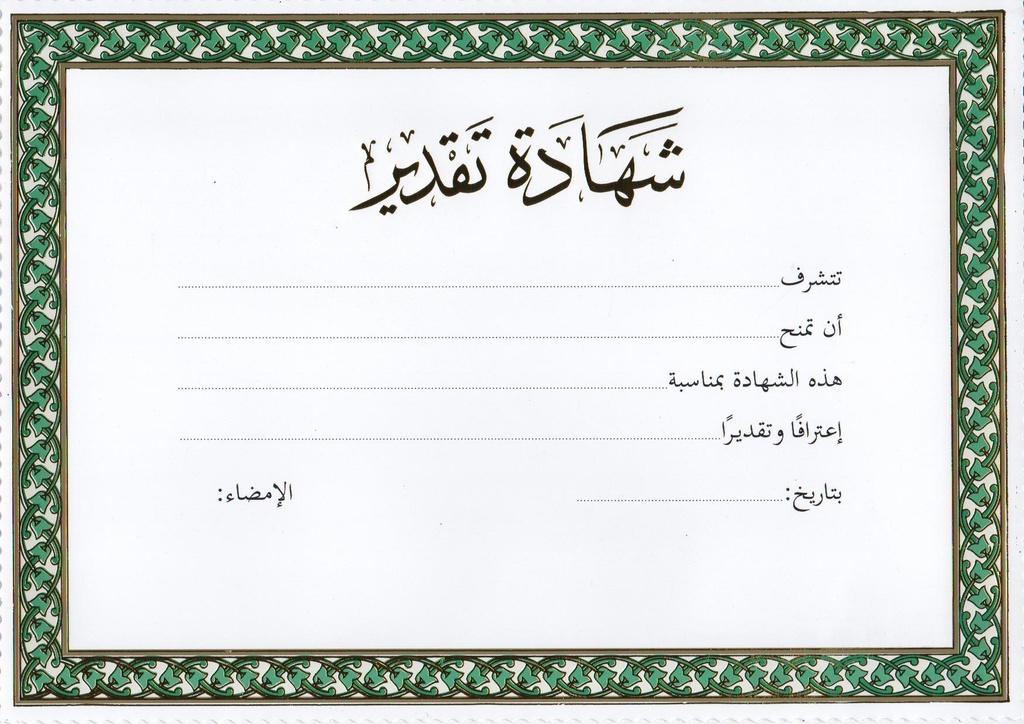 شهادة تقدير
تتشرف
أن تمنح
هذه الشهادة بمناسبة
إعترافًا وتقديرًا
بتاريخ: الإمضاء: